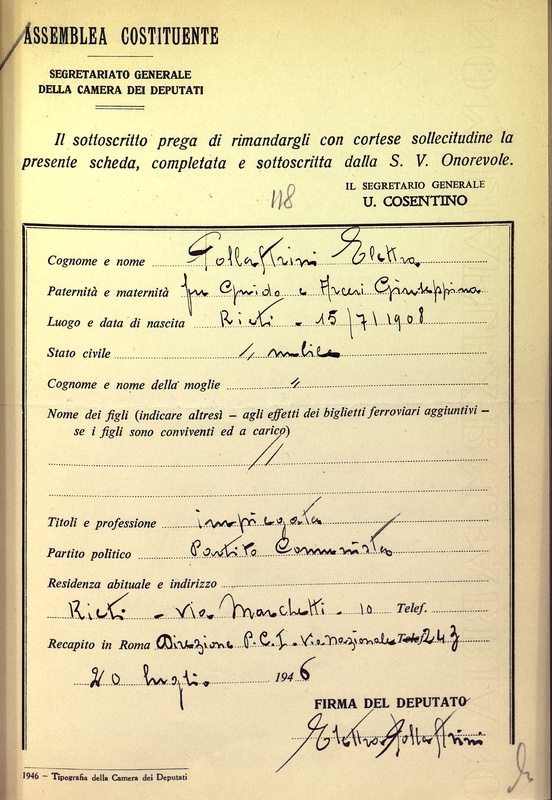 ASSEMBLEA COSTITUENTE
SEGRETARIATO GENERALE
DELLA CAMERA DEI DEPUTATI
Il sottoscritto prega di rimandargli con cortese sollecitudine la
presente scheda, completata e sottoscritta dalla S. V. Onorevole.
IL SEGRETARIO GENERALE
U. COSENTINO
118
Cognome e nome Pollastrini Elettra
Paternità e maternità fu Guido e Arceri Giuseppina
Luogo e data di nascita Rieti - 15/7/1908
Stato civile // nubile
Cognome e nome della moglie //
Nome dei figli (indicare altresì – agli effetti dei biglietti ferroviari aggiuntivi –
se i figli sono conviventi ed a carico)
//
Titoli e professione impiegata
Partito politico Partito Comunista
Residenza abituale e indirizzo
Rieti - Via Marchetti - 10 Telef.
Recapito in Roma Direzione P.C.I. - Via Nazionale Telef. 243
20 luglio 1946
FIRMA DEL DEPUTATO
Elettra Pollastrini
1946 – Tipografia della Camera dei Deputati